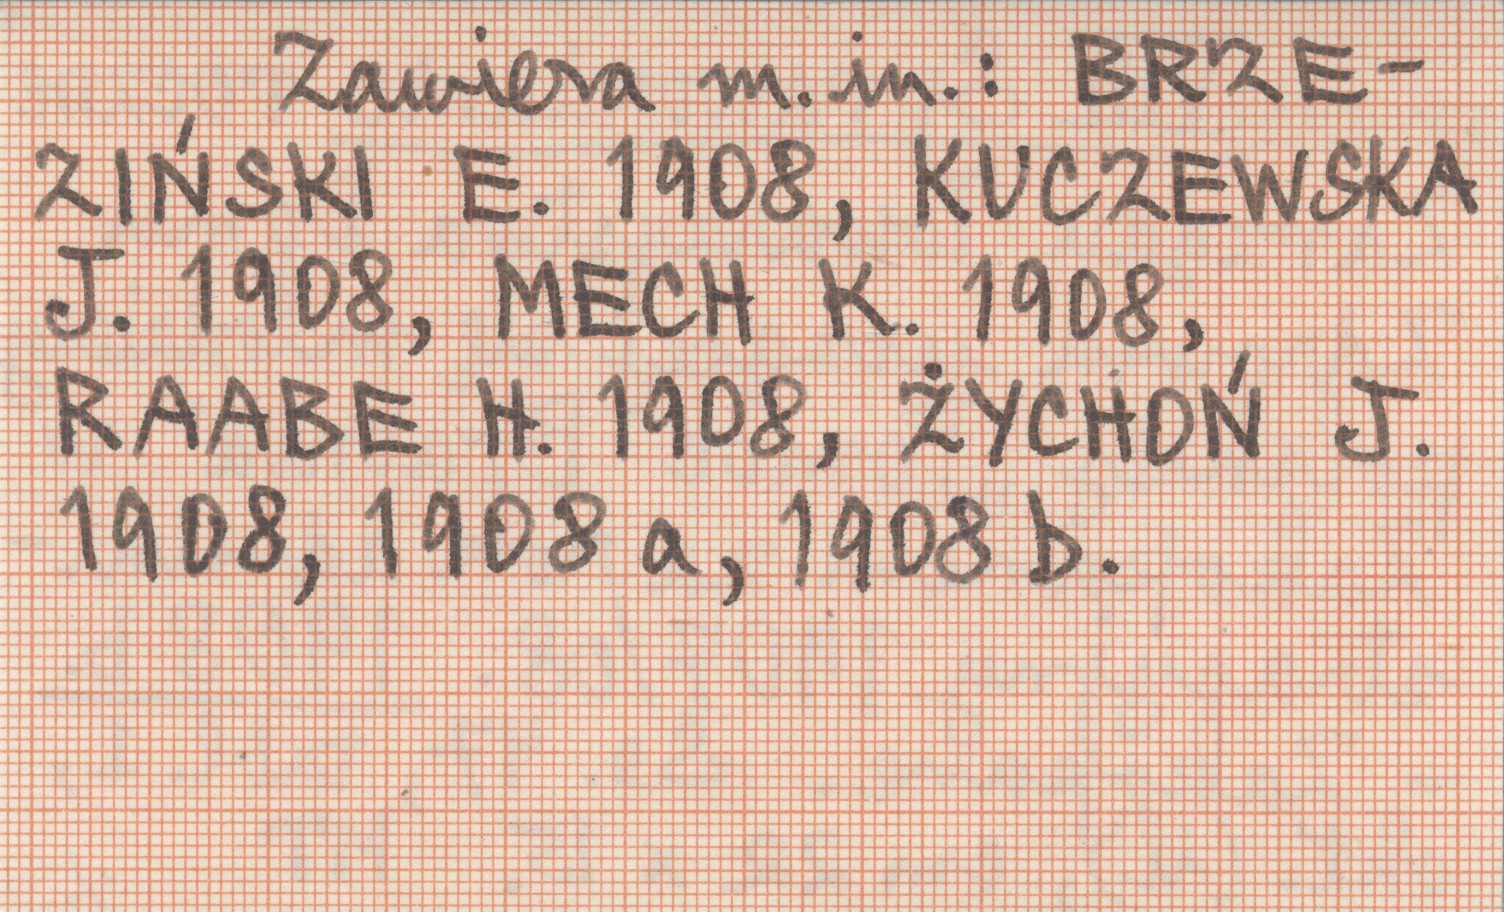 Zawiera m.in.: BRZE-
ZIŃSKI E. 1908, KUCZEWSKA
J. 1908, MECH K. 1908,
RAABE H. 1908, ŻYCHOŃ J.
1908, 1908 a, 1908 b.